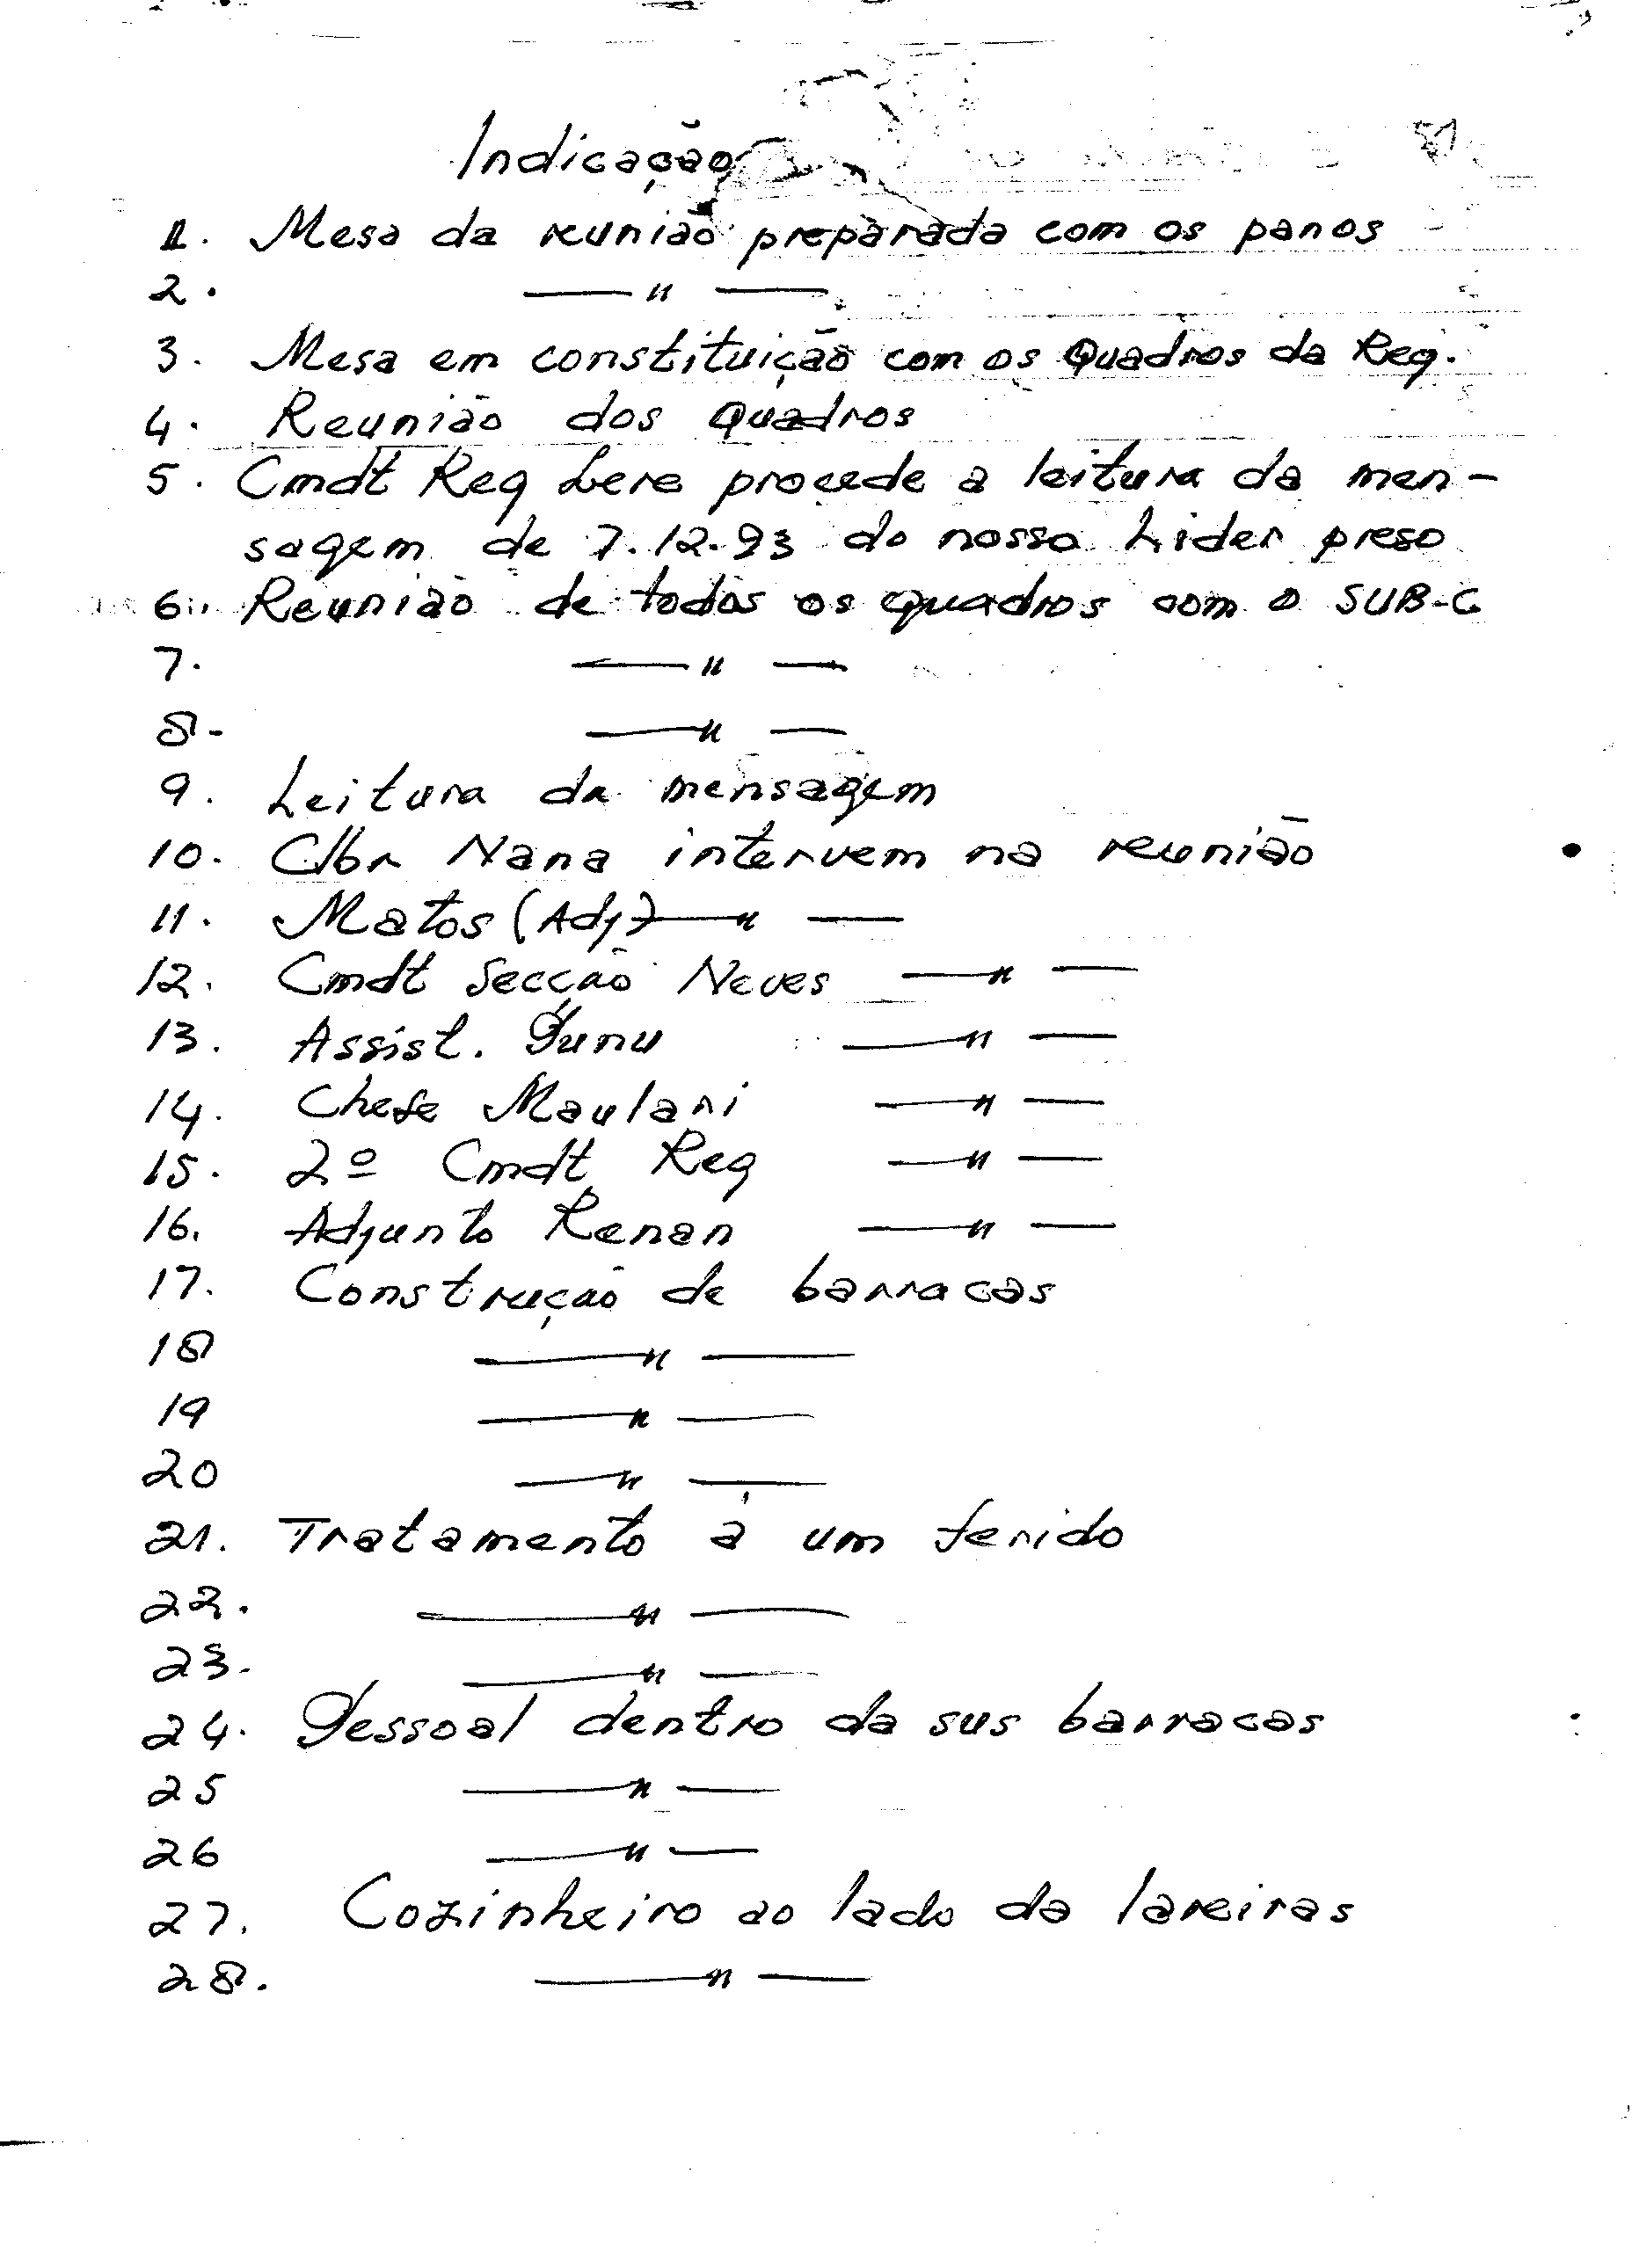 Indicação
1. Mesa da reunião preparada com os panos
2. — " —
3. Mesa em constituição com os Quadros da Reg.
4. Reunião dos Quadros
5. Cmdt Reg Lere procede a leitura da men-
sagem de 7.12.93 do nosso Lider preso
6. Reunião de todos os quadros com o SUB-C
7. — " —
8. — " —
9. Leitura da mensagem
10. Clbr Nana intervem na reunião
11. Matos (Adj) — " —
12. Cmdt Secção Neves — " —
13. Assist. — " —
14. Chefe Maulani — " —
15. 2º Cmdt Reg — " —
16. Adjunto Renan — " —
17. Construção de barracas
18 — " —
19 — " —
20 — " —
21. Tratamento à um ferido
22. — " —
23. — " —
24. Pessoal dentro da sus barracas
25 — " —
26 — " —
27. Cozinheiro ao lado da lareiras
28. — " —